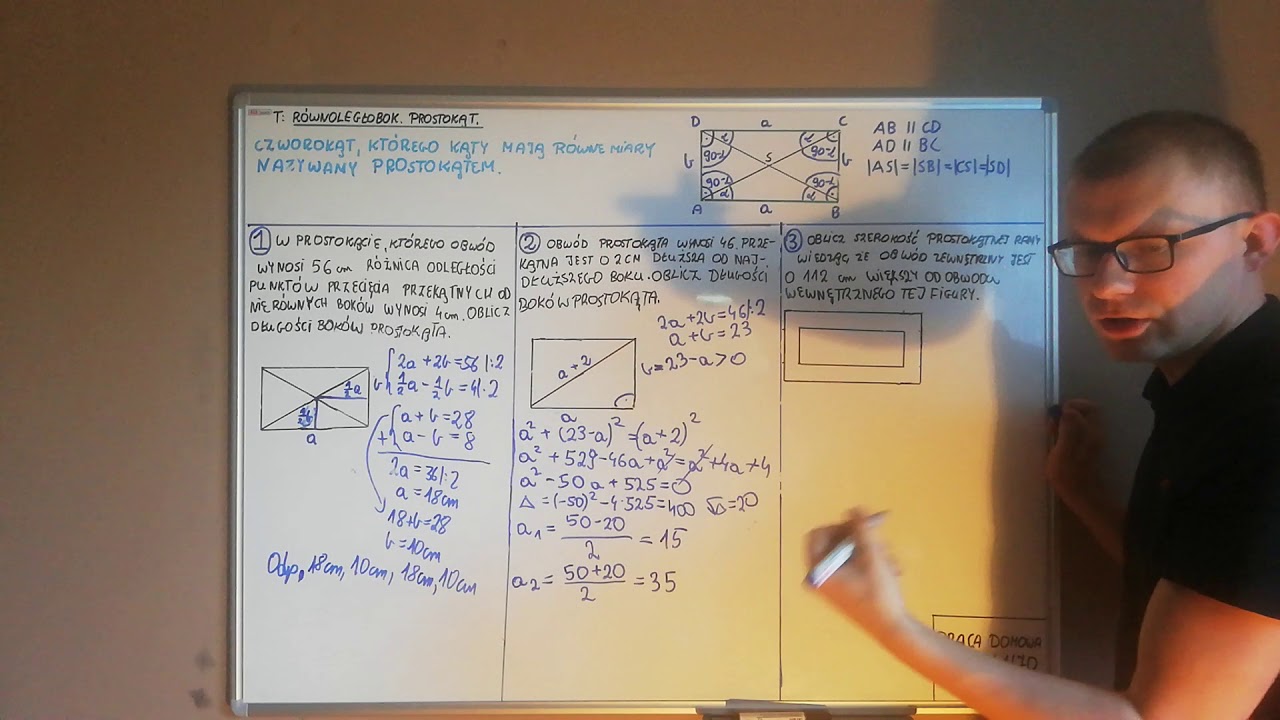 T: RÓWNOLEGŁOBOK. PROSTOKĄT.
CZWOROKĄT, KTÓREGO KĄTY MAJĄ RÓWNE MIARY
NAZYWANY PROSTOKĄTEM.
D a C
α α
90-α 90-α
b S b
90-α 90-α
α α
A a B
AB || CD
AD || BC
|AS|=|SB|=|CS|=|SD|
1 W PROSTOKĄCIE, KTÓREGO OBWÓD
WYNOSI 56 cm RÓŻNICA ODLEGŁOŚCI
PUNKTÓW PRZECIĘCIA PRZEKĄTNYCH OD
NIERÓWNYCH BOKÓW WYNOSI 4cm. OBLICZ
DŁUGOŚCI BOKÓW PROSTOKĄTA.
½a
b
½b
a
2a + 2b = 56 |:2
½a - ½b = 4|·2
a + b = 28
+ a - b = 8
2a = 36|:2
a = 18cm
18+b=28
b=10cm
Odp. 18cm, 10cm, 18cm, 10cm
2 OBWÓD PROSTOKĄTA WYNOSI 46. PRZE-
KĄTNA JEST O 2CM DŁUŻSZA OD NAJ-
DŁUŻSZEGO BOKU. OBLICZ DŁUGOŚCI
BOKÓW PROSTOKĄTA.
2a+2b=46|:2
a+b=23
b=23-a>0
a+2
a
a²+(23-a)²=(a+2)²
a²+529-46a+a²=a²+4a+4
a²-50a+525=0
Δ=(-50)²-4·525=400 √Δ=20
a₁ = (50-20)/2 = 15
a₂ = (50+20)/2 = 35
3 OBLICZ SZEROKOŚĆ PROSTOKĄTNEJ RAMY
WIEDZĄC ŻE OBWÓD ZEWNĘTRZNY JEST
O 112 cm WIĘKSZY OD OBWODU
WEWNĘTRZNEGO TEJ FIGURY.
PRACA DOMOWA